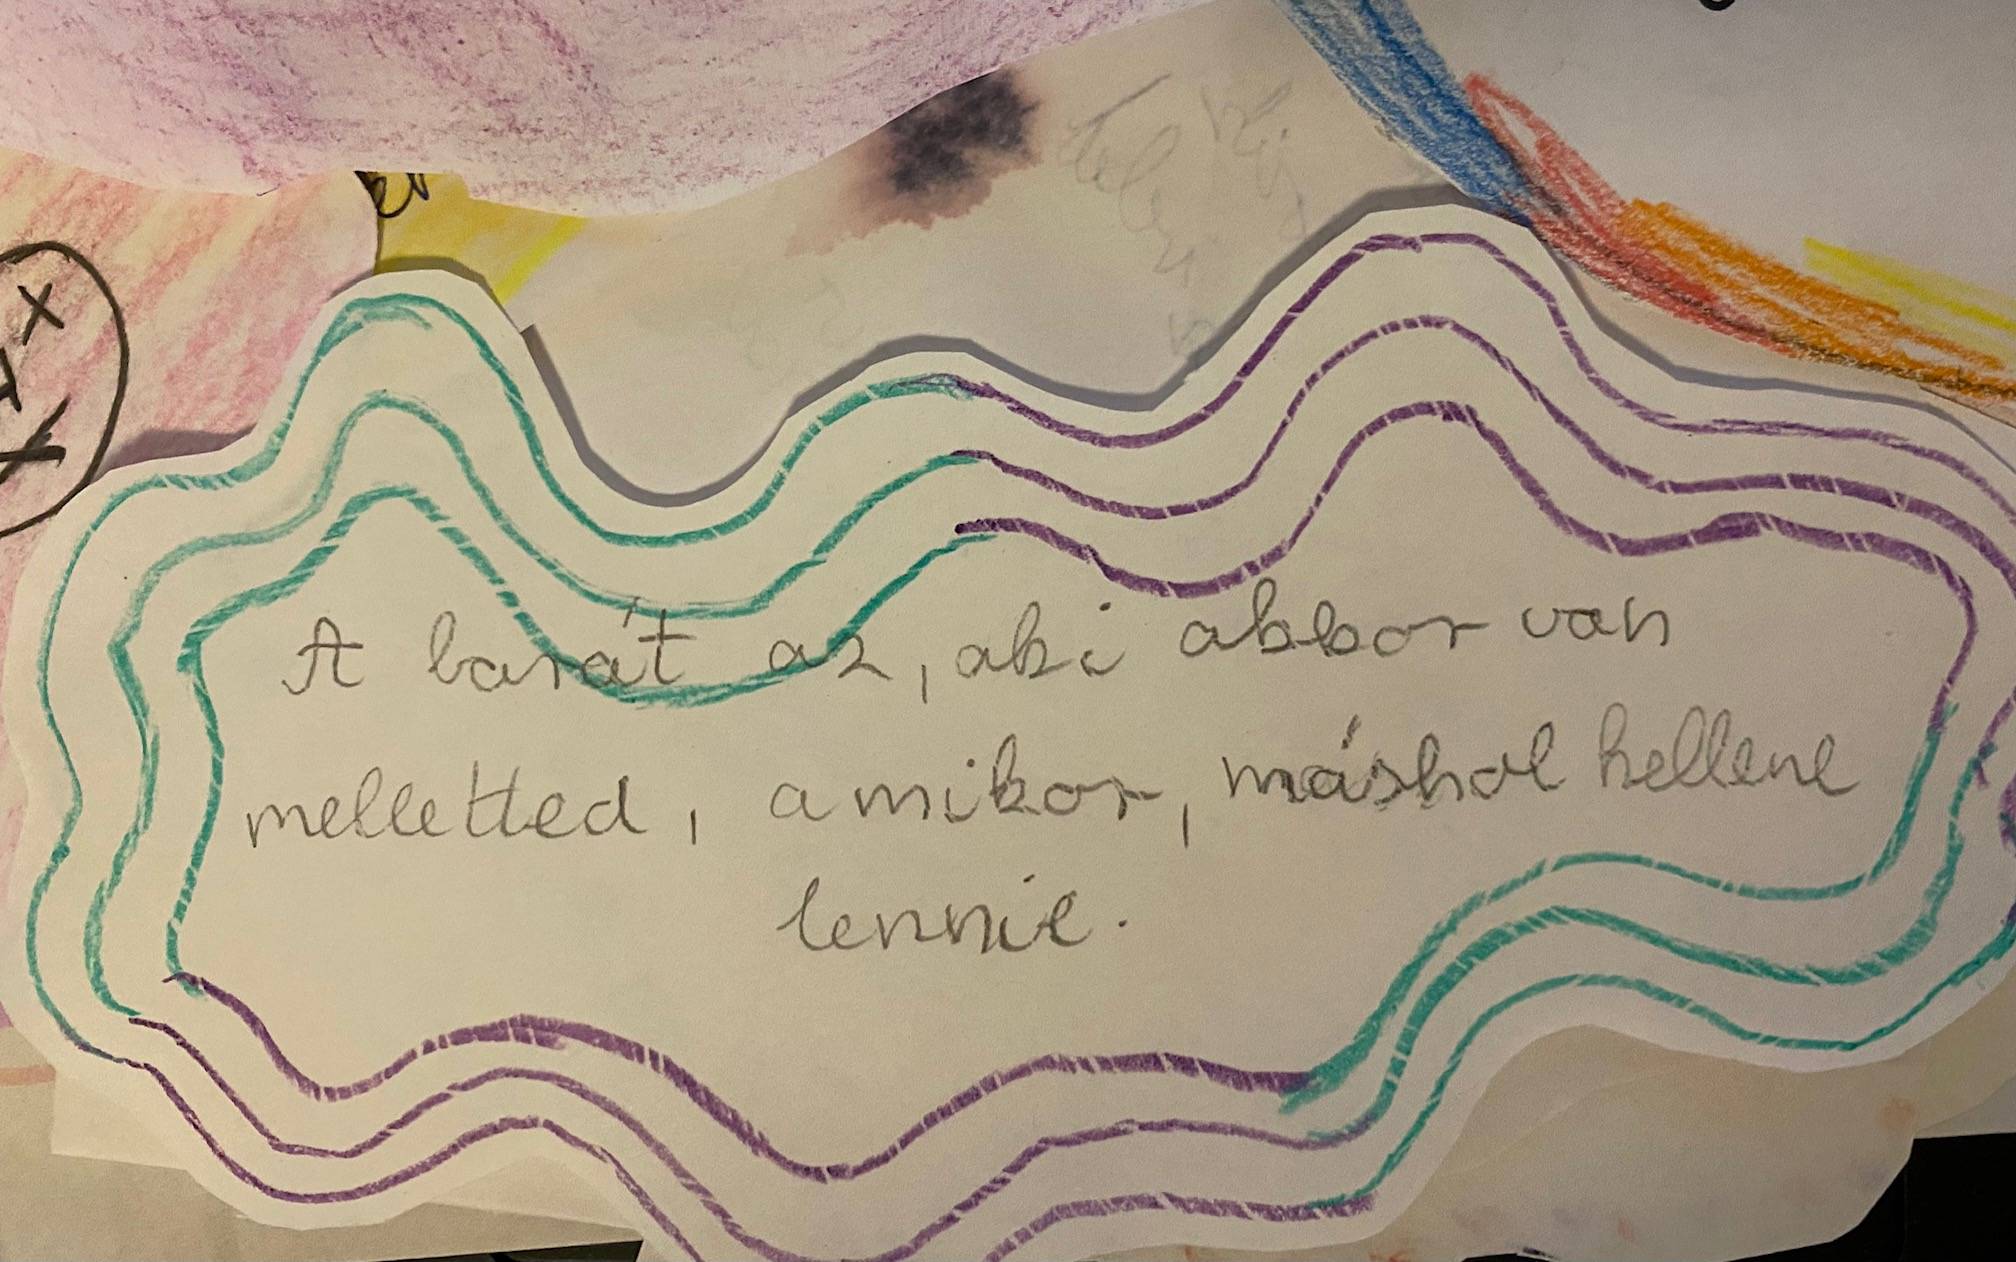 A barát az, aki akkor van
melletted, amikor, máshol kellene
lennie.